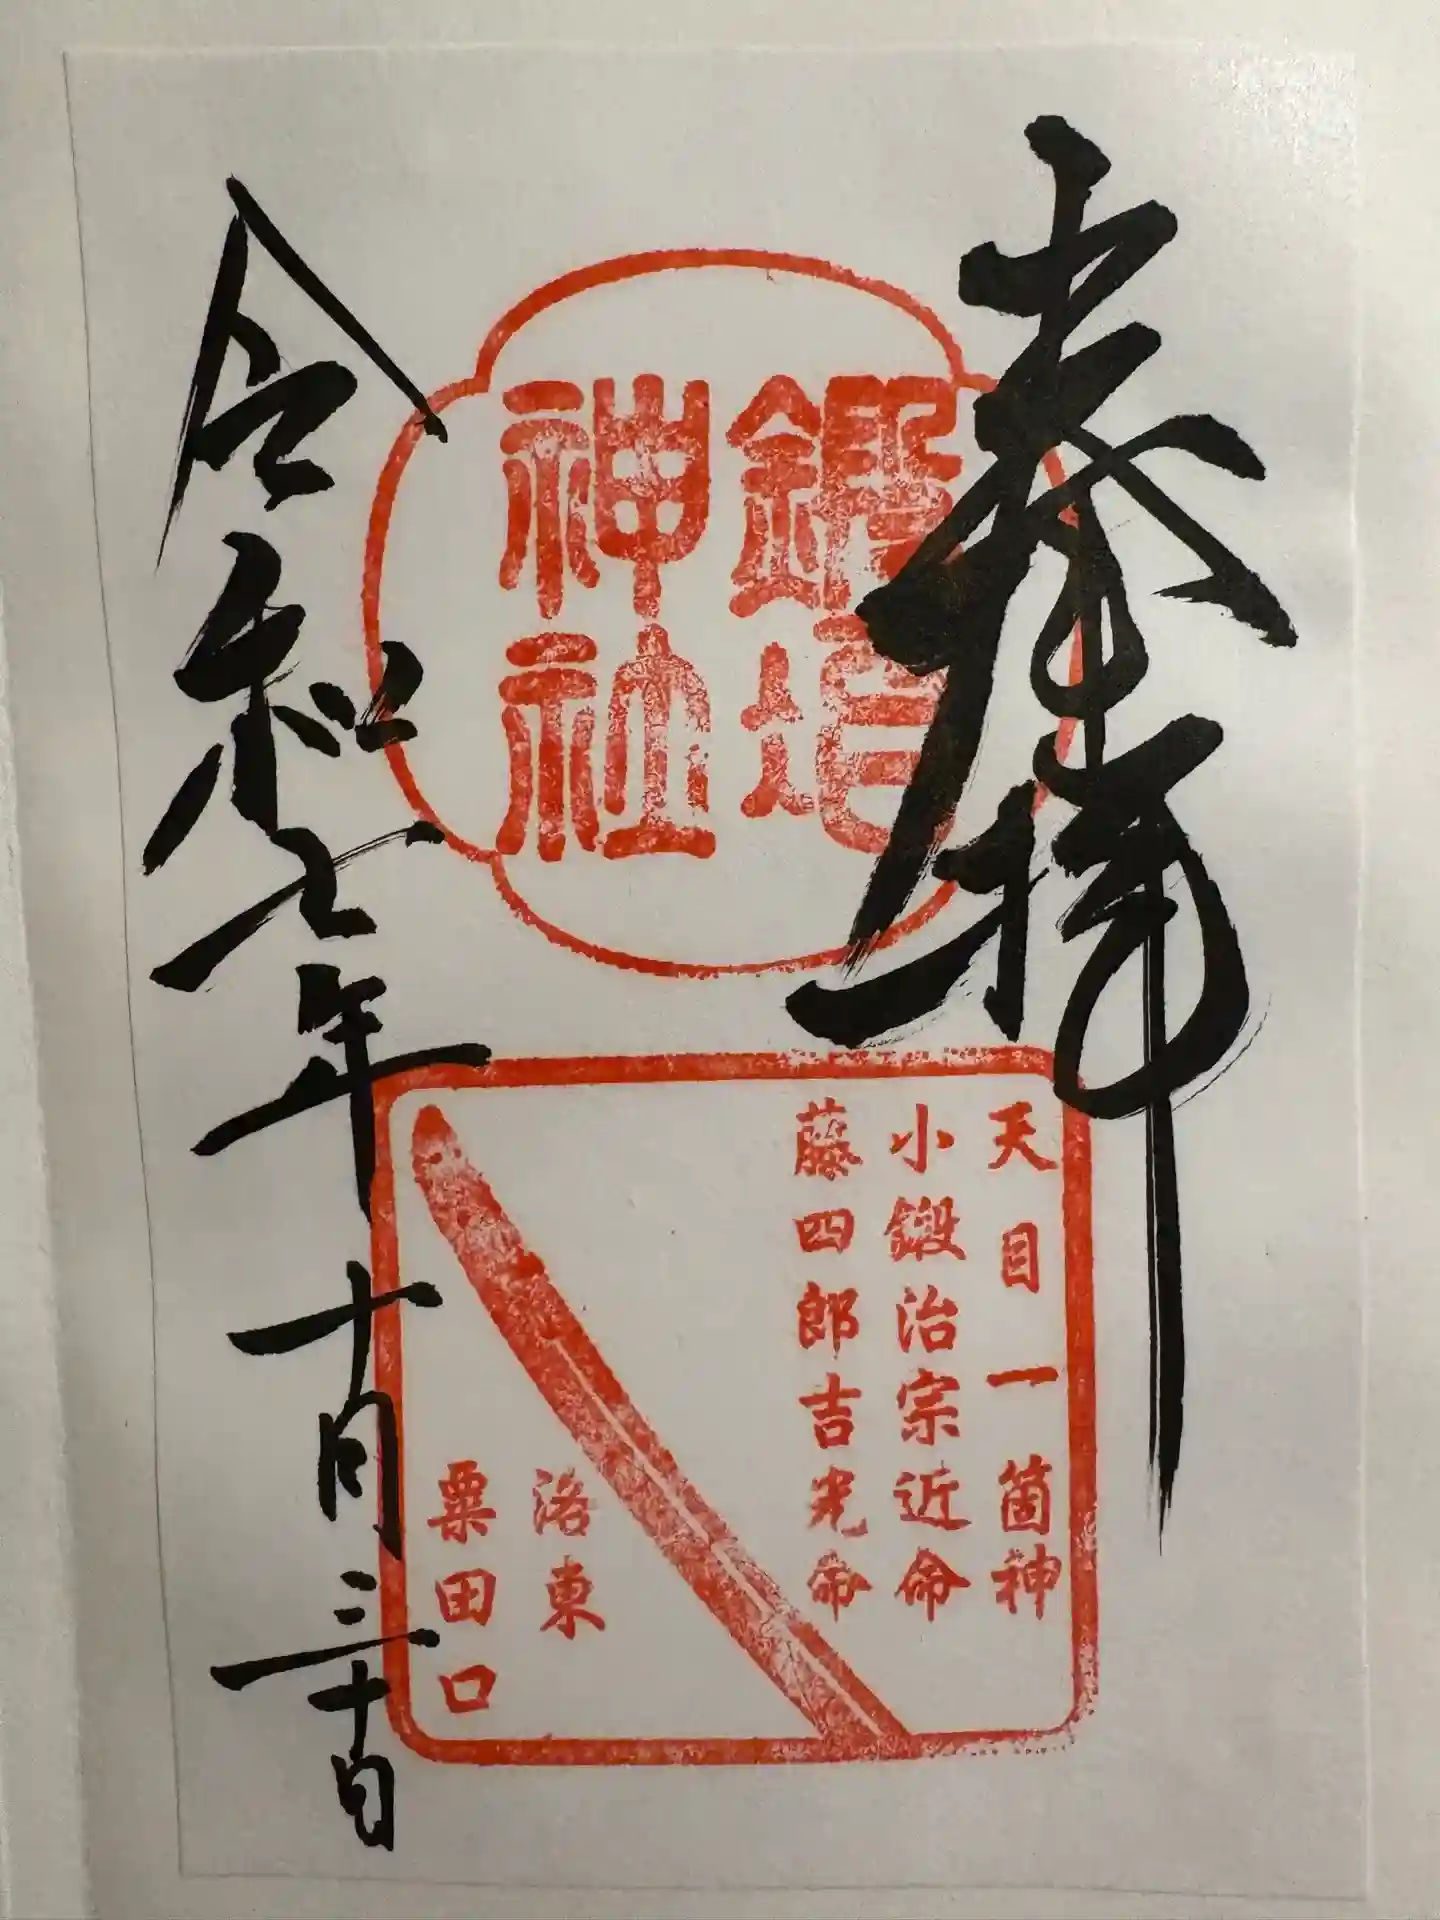 奉拝
鍛冶神社
天目一箇神
小鍛治宗近命
藤四郎吉光命
洛東
粟田口
令和七年十月三十日